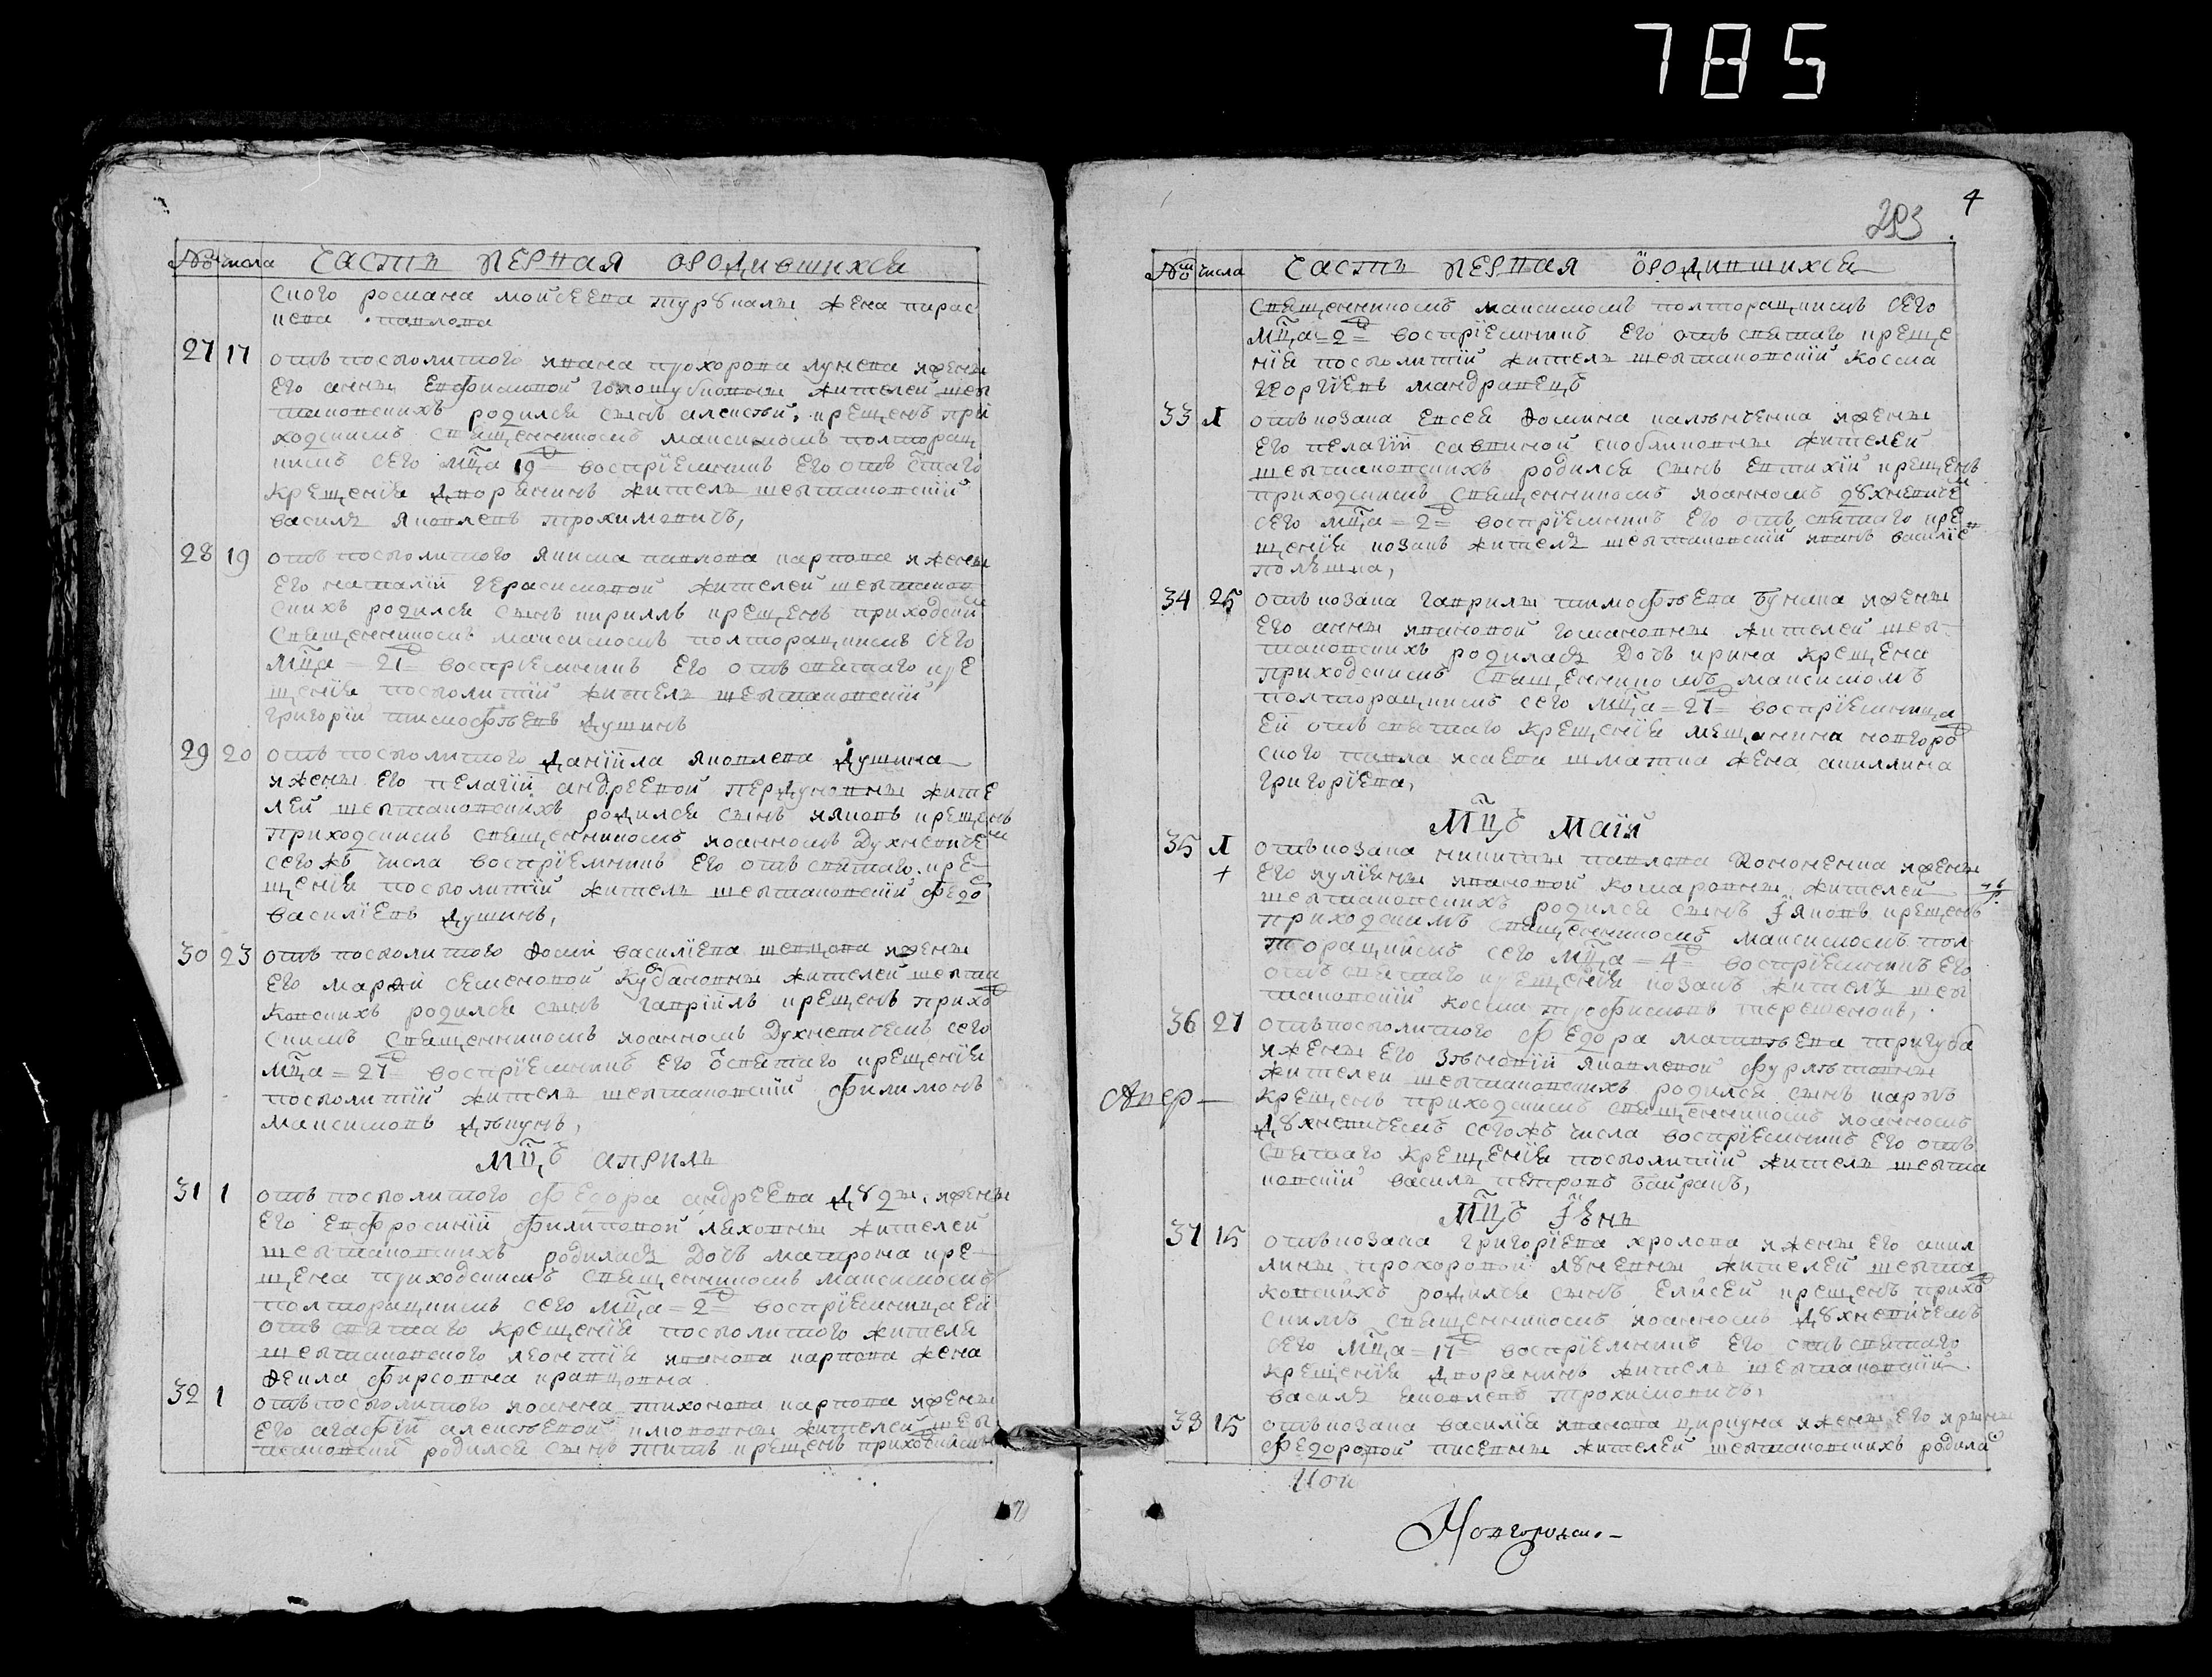 785
№ числа Часть первая о родившихся
ского романа моисеева туруналы жена парас
кева павлова
27 17 отъ посполитого ивана прохорова лунева и жены
его анны евфимовой голошубковны жителей шеп
таковскихъ родился сынъ алексѣй, крещенъ при
ходскимъ священникомъ максимомъ полторац
кимъ сего мца 19 д воспрїемникъ его отъ стаго
крещенїя дворянинъ житель шептаковскїй
василь яковлевъ трохимовичъ,
28 19 отъ посполитого якима павлова карпова и жены
его наталїи герасимовой жителей шептаков
скихъ родился сынъ кириллъ крещенъ приходским
священникомъ максимомъ полторацкимъ сего
мца = 21 д воспрїемникъ его отъ святаго кре
щенїя посполитїй житель шептаковскїй
григорїй тимофѣевъ душинъ
29 20 отъ посполитого данїила яковлева душина
и жены его пелагїи андреевой пердуновны жите
лей шептаковскихъ родился сынъ иаковъ крещенъ
приходскимъ священникомъ иоанномъ Духневичем
сегожъ числа воспрїемникъ его отъ святаго кре
щенїя посполитїй житель шептаковскїй федо
василїевъ душинъ,
30 23 отъ посполитого фомы василїева шевцова и жены
его марфи семеновой кубаковны жителей шепта
ковскихъ родился сынъ гаврїилъ крещенъ прихо
скимъ священникомъ иоанномъ Духневичемъ сего
мца = 27 д воспрїемникъ его ѿ святаго крещенїя
посполитїй житель шептаковскїй филимонъ
максимовъ дѣкунъ,
мцъ априль
31 1 отъ посполитого федора андреева дуды, и жены
его евфросинїи филиповой ляховны жителей
шептаковскихъ родилась Дочь матрона кре
щена приходскимъ священникомъ максимомъ
полторацкимъ сего мца = 2 д воспрїемница ей
отъ святаго крещенїя посполитого жителя
шептаковского леонтїя иванова карпова жена
фекла фирсовна кравцовна
32 1 отъ посполитого иоанна тихонова карпова и жены
его агафїи алексѣевой климовны жителей шеп
таковскихъ родился сынъ титъ крещенъ приходскимъ
4
293
№ числа Часть первая ѿ родившихся
Священникомъ максимомъ полторацкимъ сего
мца = 2 д воспрїемникъ его отъ святаго креще
нїя посполитїй житель шептаковскїй косма
георгїевъ мандрикецъ
33 1 отъ козака евсея фомина калюченка и жены
его пелагїи савиной скобликовны жителей
шептаковскихъ родился сынъ евтихїй крещенъ
приходскимъ священникомъ иоанномъ духневиче
сего мца = 2 д воспрїемникъ его отъ святаго кре
щенїя козакъ житель шептаковскїй иванъ василїе
полѣшка,
34 25 отъ козака гаврилы тимофѣева бунака и жены
его анны ивановой гомановны жителей шеп
таковскихъ родилась Дочь ирина крещена
приходскимъ священникомъ максимомъ
полторацкимъ сего мца = 27 д воспрїемница
ей отъ святаго крещенїя мещанина новгоро
ского павла исаева шматка жена акиллина
григорїева,
Мцъ Маїй
35 1 отъ козака никиты павлова кононенка и жены
+ его иулїяны ивановой комаровны жителей
шептаковскихъ родился сынъ иаковъ крещенъ
приходскимъ священникомъ максимомъ пол
торацкимъ сего мца = 4 д воспрїемникъ его
отъ святаго крещенїя козакъ житель шеп
таковскїй косма трофимовъ терешенокъ,
36 27 отъ посполитого федора матвѣева тригуба
и жены его зѣновїи яковлевой фурлѣтовны
жителей шептаковскихъ родился сынъ карпъ
Апер — крещенъ приходскимъ священникомъ иоанномъ
духневичемъ сегожъ числа воспрїемникъ его отъ
святаго крещенїя посполитїй житель шепта
ковскїй василь петровъ байракъ,
мцъ iюнь
37 15 отъ козака григорїева хролова и жены его акил
лины прохоровой луневны жителей шепта
ковскихъ родился сынъ елисей крещенъ прихо
скимъ священникомъ иоанномъ духневичемъ
сего мца = 17 д воспрїемникъ его отъ святаго
крещенїя дворянинъ житель шептаковскїй
василь яковлевъ трохимовичъ,
38 15 отъ козака василїя иванова цируна и жены его ирины
федоровой писевны жителей шептаковскихъ родила
Новгородско-